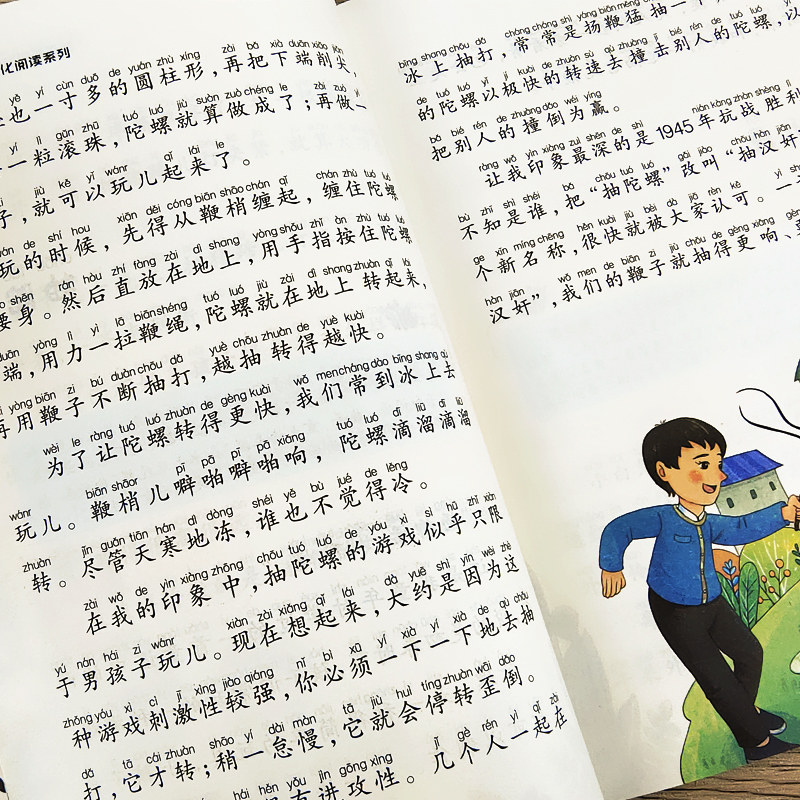 化阅读系列
yě yī cùn duō de yuán zhù xíng zài bǎ xià duān xiāo jiān
也一寸多的圆柱形，再把下端削尖，
yī lì gǔn zhū tuó luó jiù suàn zuò chéng le zài zuò
一粒滚珠，陀螺就算做成了；再做一
jiù kě yǐ wánr qǐ lái le
子，就可以玩儿起来了。
de shí hou xiān děi cóng biān shāo chán qǐ chán zhù tuó luó
玩的时候，先得从鞭梢缠起，缠住陀螺
shēn rán hòu zhí fàng zài dì shang yòng shǒu zhǐ àn zhù tuó luó
腰身。然后直放在地上，用手指按住陀螺
duān yòng lì yī lā biān shéng tuó luó jiù zài dì shang zhuàn qǐ lái
端，用力一拉鞭绳，陀螺就在地上转起来，
yòng biān zi bù duàn chōu dǎ yuè chōu zhuàn de yuè kuài
再用鞭子不断抽打，越抽转得越快。
wèi le ràng tuó luó zhuàn de gèng kuài wǒ men cháng dào bīng shang qù
为了让陀螺转得更快，我们常到冰上去
wánr biān shāor pī pā pī pā xiǎng tuó luó dī liū dī liū
玩儿。鞭梢儿噼啪噼啪响，陀螺滴溜滴溜
zhuàn jǐn guǎn tiān hán dì dòng shéi yě bù jué de lěng
转。尽管天寒地冻，谁也不觉得冷。
zài wǒ de yìn xiàng zhōng chōu tuó luó de yóu xì sì hū zhǐ xiàn
在我的印象中，抽陀螺的游戏似乎只限
yú nán hái zi wánr xiàn zài xiǎng qǐ lái dà yuē shì yīn wèi zhè
于男孩子玩儿。现在想起来，大约是因为这
zhǒng yóu xì cì jī xìng jiào qiáng nǐ bì xū yī xià yī xià de qù chōu
种游戏刺激性较强，你必须一下一下地去抽
dǎ tā cái zhuàn shāo yī dài màn tā jiù huì tíng zhuàn wāi dǎo
打，它才转；稍一怠慢，它就会停转歪倒。
hái hěn yǒu jìn gōng xìng jǐ gè rén yī qǐ zài
有进攻性。几个人一起在
bīng shang chōu dǎ cháng cháng shì yáng biān měng chōu yī
冰上抽打，常常是扬鞭猛抽一
de tuó luó yǐ jí kuài de zhuàn sù qù zhuàng jī bié rén de tuó luó yǐ
的陀螺以极快的转速去撞击别人的陀螺，以
bǎ bié rén de zhuàng dǎo wéi yíng
把别人的撞倒为赢。
ràng wǒ yìn xiàng zuì shēn de shì nián kàng zhàn shèng lì
让我印象最深的是1945年抗战胜利
bù zhī shì shéi bǎ chōu tuó luó gǎi jiào chōu hàn jiān
不知是谁，把“抽陀螺”改叫“抽汉奸”
gè xīn míng chēng hěn kuài jiù bèi dà jiā rèn kě yī
个新名称，很快就被大家认可。一
hàn jiān wǒ men de biān zi jiù chōu de gèng xiǎng
汉奸”，我们的鞭子就抽得更响、